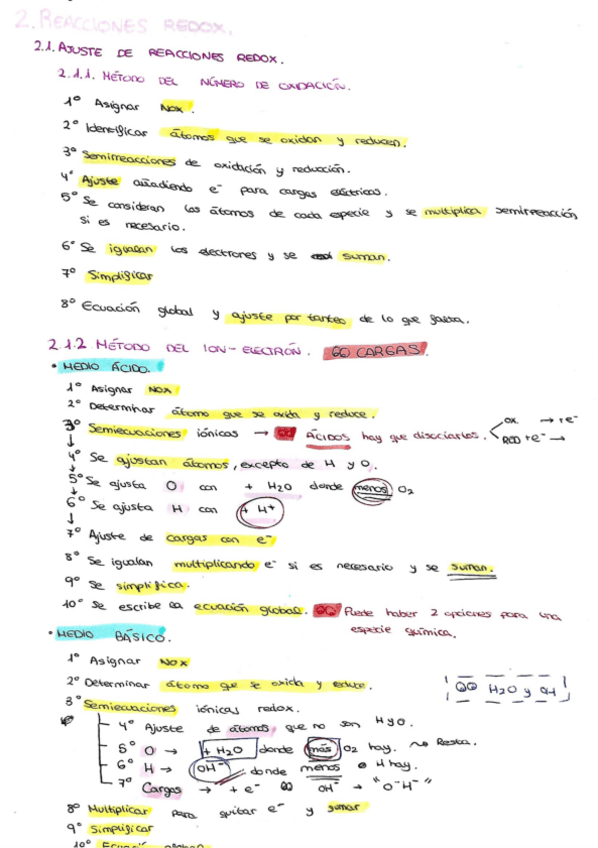 2. REACCIONES REDOX.
2.1. AJUSTE DE REACCIONES REDOX.
2.1.1. MÉTODO DEL NÚMERO DE OXIDACIÓN.
1º Asignar Nox.
2º Identificar átomos que se oxidan y reducen.
3º Semirreacciones de oxidación y reducción.
4º Ajuste añadiendo e⁻ para cargas eléctricas.
5º Se consideran los átomos de cada especie y se multiplica semirreacción
si es necesario.
6º Se igualan los electrones y se suman.
7º Simplificar
8º Ecuación global y ajuste por tanteo de lo que falta.
2.1.2 MÉTODO DEL ION-ELECTRÓN. CARGAS.
• MEDIO ÁCIDO.
1º Asignar NOX
2º Determinar átomo que se oxida y reduce.
3º Semiecuaciones iónicas → ÁCIDOS hay que disociarlos. OX. → + e⁻
RED + e⁻ →
4º Se ajustan átomos, excepto de H y O.
5º Se ajusta O con + H2O donde menos O2
6º Se ajusta H con + H⁺
7º Ajuste de cargas con e⁻
8º Se igualan multiplicando e⁻ si es necesario y se suman.
9º Se simplifica.
10º Se escribe la ecuación global. Puede haber 2 opciones para una
especie química.
• MEDIO BÁSICO.
1º Asignar NOX
2º Determinar átomo que se oxida y reduce. H2O y OH
3º Semiecuaciones iónicas redox.
4º Ajuste de átomos que no son H y O.
5º O → + H2O donde más O2 hay. → Resta.
6º H → OH⁻ donde menos H hay.
7º Cargas → + e⁻ OH⁻ → "O⁻H⁻"
8º Multiplicar para quitar e⁻ y sumar
9º Simplificar
10º Ecuación global